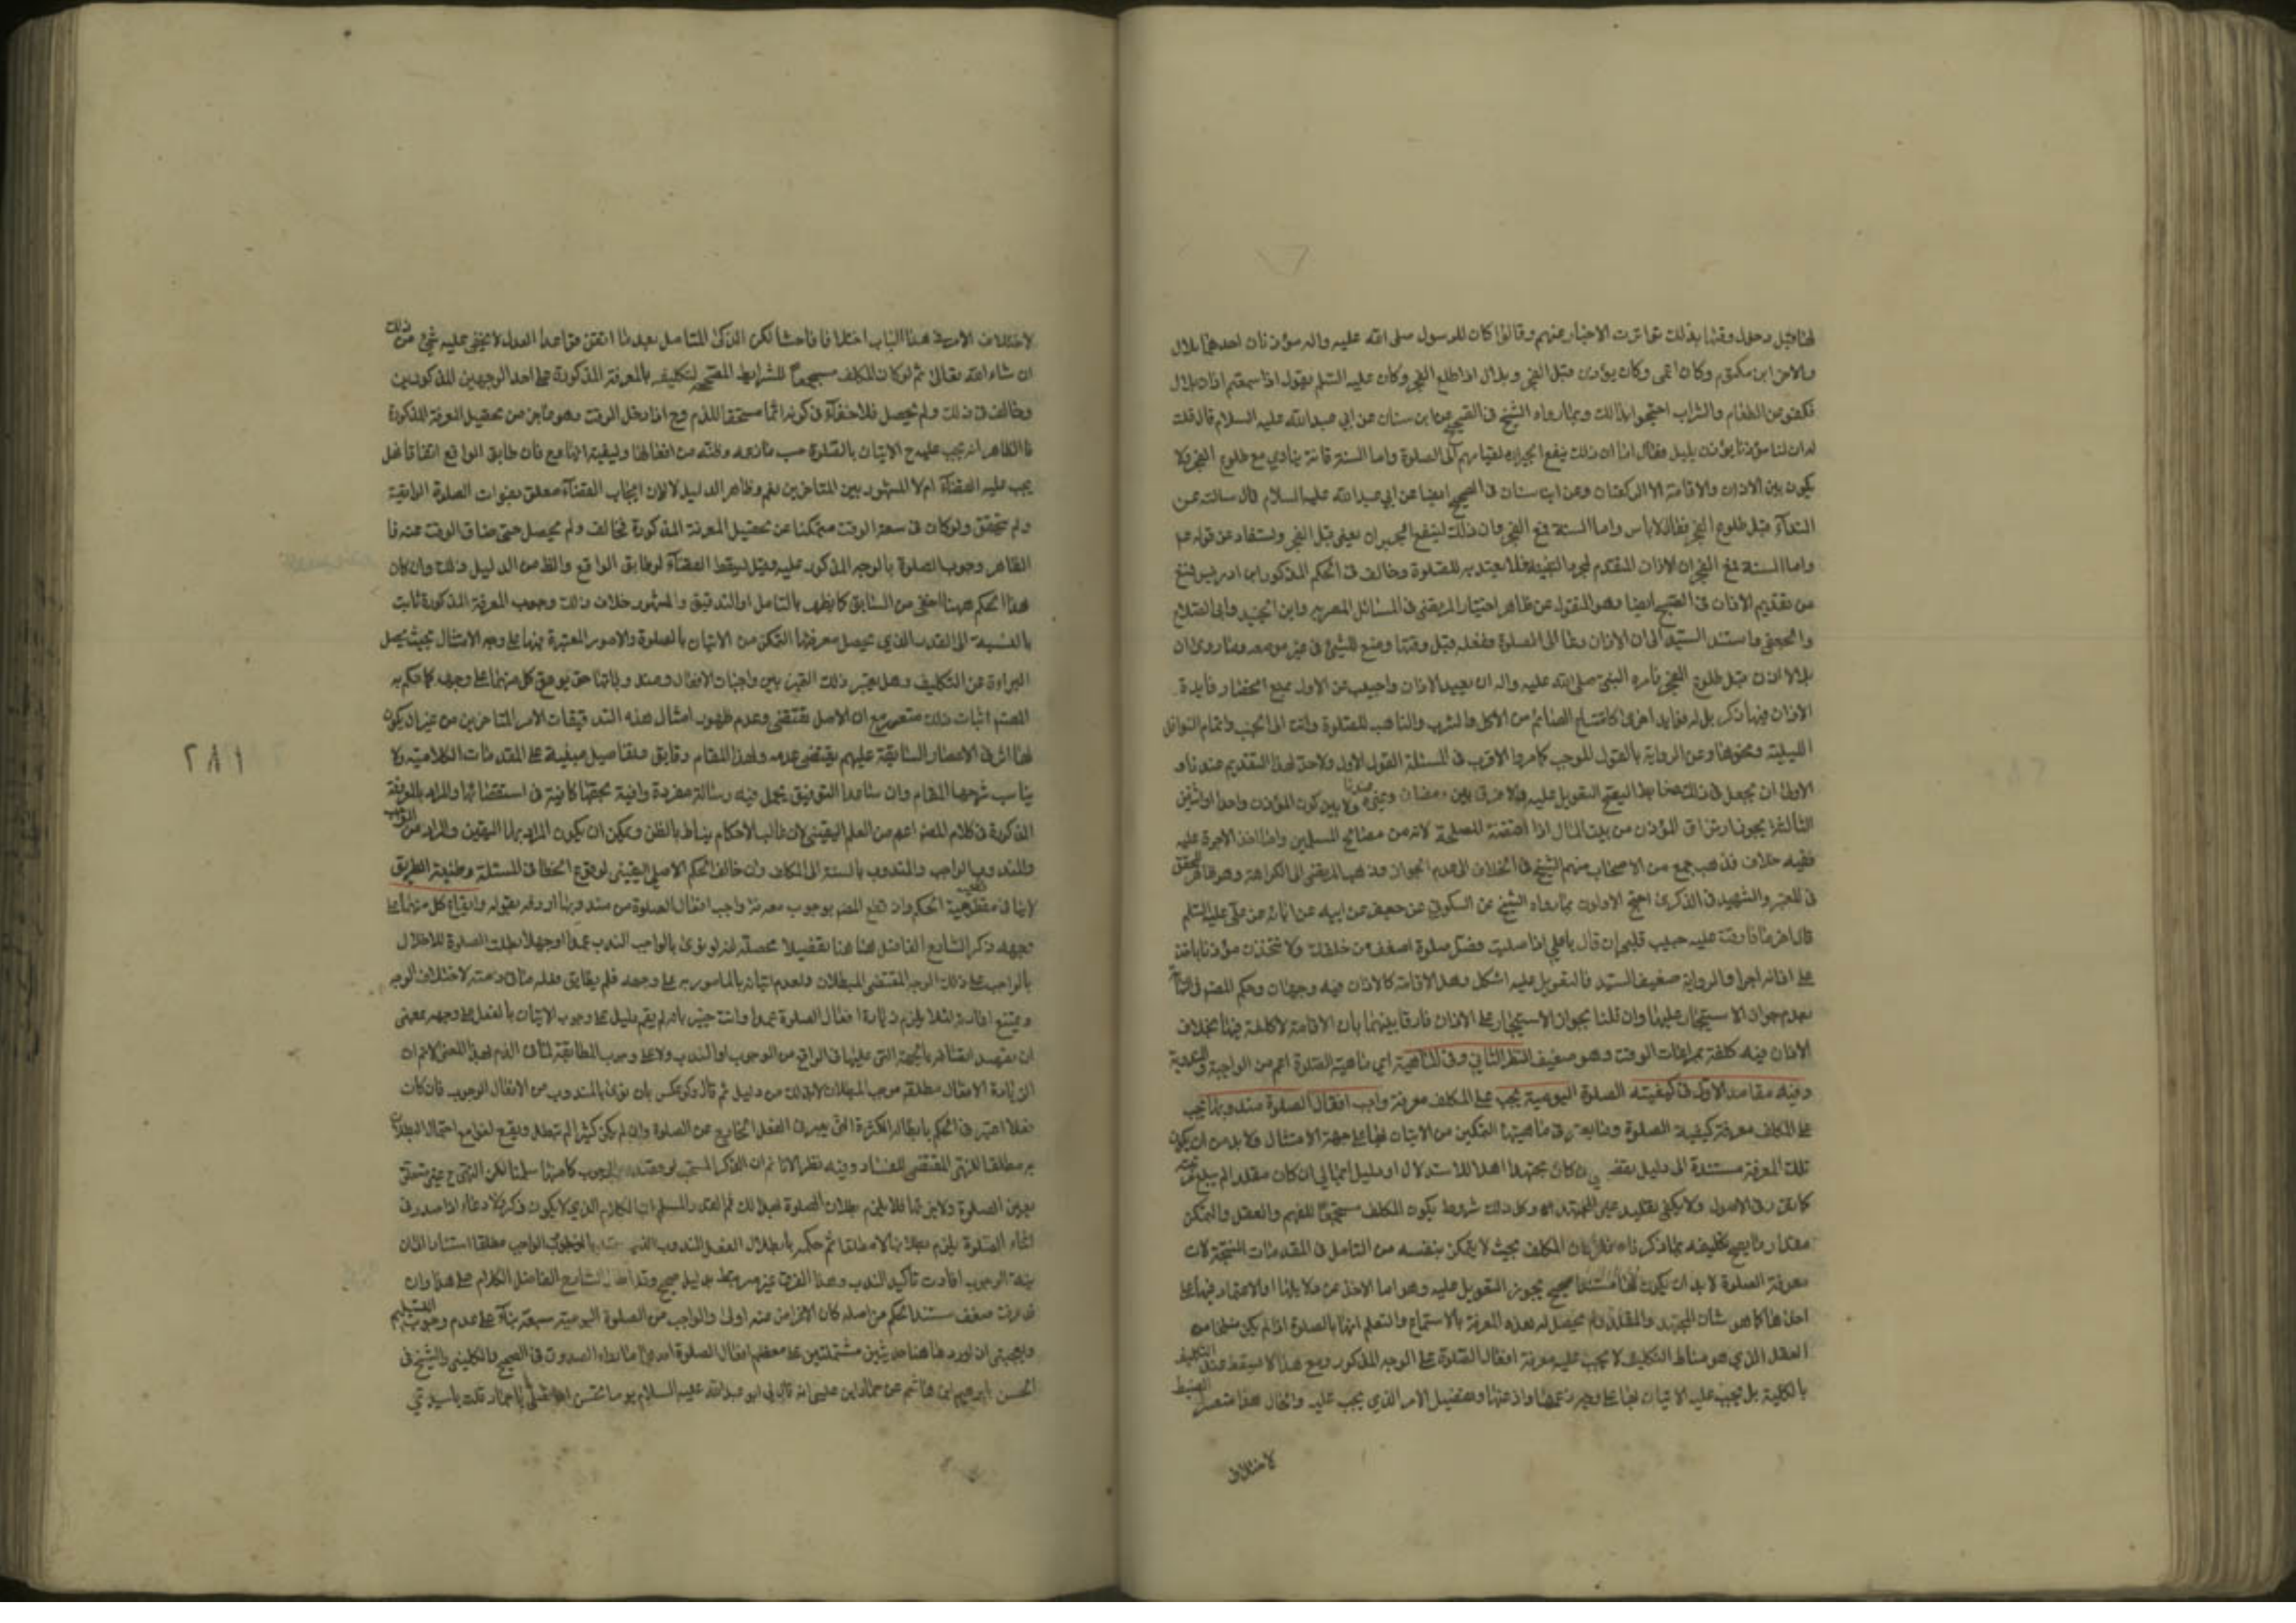 لها قبل دخول وقتها بذلك تواترت الاخبار عنهم وقالوا كان للرسول صلى الله عليه واله مؤذنان احدهما بلال
والاخر ابن مكتوم وكان اعمى وكان يؤذن قبل الفجر وبلال اذا طلع الفجر وكان عليه السلم يقول اذا سمعتم اذان بلال
فكفوا عن الطعام والشراب احتجوا بذلك وبما رواه الشيخ في الصحيح عن ابن سنان عن ابي عبدالله عليه السلام قال قلت
له ان لنا مؤذنا يؤذن بليل فقال اما ان ذلك ينفع الجيران لقيامهم الى الصلوة واما السنة فانه ينادي مع طلوع الفجر ولا
يكون بين الاذان والاقامة الا الركعتان وعن ابن سنان في الصحيح ايضا عن ابي عبدالله عليه السلام قال سالته عن
النداء قبل طلوع الفجر فقال لا باس واما السنة مع الفجر وان ذلك لينفع الجيران يعني قبل الفجر ويستفاد من قوله عم
واما السنة مع الفجر ان الاذان المقدم فلا يعتد به للصلوة وخالف في الحكم المذكور ابن ادريس فمنع
من تقديم الاذان في الصبح ايضا وهو المنقول عن ظاهر اختيار المرتضى في المسائل المصريه وابن الجنيد وابي الصلاح
والجعفي واستند السيد الى ان الاذان دعا الى الصلوة وفعله قبل وقتها وضع للشئ في غير موضعه وبما روى ان
بلالا اذن قبل طلوع الفجر فامره النبي صلى الله عليه واله ان يعيد الاذان واجيب عن الاول بمنع انحصار فايدة
الاذان فيما ذكر بل له فوايد اخرى كامتناع الصائم من الاكل والشرب والتاهب للصلوة واتمام النوافل
الليلية ونحوها وعن الرواية بالقول للموجب كما مر والاقرب في المسئلة القول الاول ولا حد لهذا التقديم عندنا و
الاولى ان يجعل في ذلك ليقع التعويل عليه فلا فرق بين رمضان وغيره عندنا ولا بين كون المؤذن واحدا او اثنين
الثالثة يجوز ارتزاق المؤذن من بيت المال اذا اقتضته المصلحة لانه من مصالح المسلمين واما اخذ الاجرة عليه
ففيه خلاف فذهب جمع من الاصحاب منهم الشيخ في الخلاف الى عدم الجواز وذهب المرتضى الى الكراهة وهو ظاهر المحقق
في المعتبر والشهيد في الذكرى احتج الاولون بما رواه الشيخ عن السكوني عن جعفر عن ابيه عن ابائه عن علي عليه السلم
قال اخر ما فارقت عليه حبيب قلبي ان قال يا علي اذا صليت فصل صلوة اضعف من خلفك ولا تتخذن مؤذنا ياخذ
على اذانه اجرا والرواية ضعيفة السند فالتعويل عليه اشكل وهل الاقامة كالاذان فيه وجهان وحكم المصنف
بعدم جواز الاستيجار عليها وان قلنا بجواز الاستيجار على الاذان فارقا بينهما بان الاقامة لا كلفة فيها بخلاف
الاذان فيه كلفة بمراعات الوقت وهو ضعيف النظر الثاني وفي الماهية اي ماهية الصلوة اعم من الواجبة والمندوبة
وفيه مقاصد الاول في كيفيته الصلوة اليومية يجب على المكلف معرفة واجب افعال الصلوة مندوبها يجب
على المكلف معرفة كيفية الصلوة في ماهيتها التمكين من الاتيان بها على جهة الامتثال ولا بد من ان يكون
تلك المعرفة مستندة الى دليل ان كان مجتهدا اهلا للاستدلال او دليل اجمالي ان كان مقلدا لم يبلغ
كما تقرر في الاصول ولا يكفي تقليد غير المجتهد وكل ذلك شروط يكون المكلف مستجمعا للفهم والعقل والتمكن
مقدار ما يصح تكليفه بما ذكرناه المكلف بحيث لا يتمكن بنفسه من التامل في المقدمات المنتجة لان
معرفة الصلوة لا بد ان يكون لها مستندا صحيح يجوز التعويل عليه وهو اما الاخذ من دلايلها او الاعتماد فيها على
اهلها كما هو شان المجتهد والمقلد ولم يحصل له هذه المعرفة بالاستماع والتعلم
العقل الذي هو مناط التكليف لا يجب عليه معرفة افعال الصلوة على الوجه المذكور ومع هذا لا يسقط عنه التكليف
بالكلية بل يجب عليه الاتيان بها على وجه وتفصيل الامر الذي يجب عليه والحال هذا متعسر الضبط
لاختلاف
لاختلاف الامر في هذا الباب اختلافا فاحشا لكن الذكي المتامل بعد ما اتقن قواعد العدل لا يخفى عليه شئ من ذلك
ان شاء الله تعالى ثم لو كان المكلف مستجمعا للشرايط المصححة لتكليفه بالمعرفة المذكورة على احد الوجهين المذكورين
وخالف في ذلك ولم يحصل فلا خفاء في كونه اثما مستحقا للذم وح اذا دخل الوقت وهو عاجز عن تحصيل المعرفة المذكورة
فالظاهر انه يجب عليه ح الاتيان بالصلوة حسب من افعالها مع فان طابق الواقع اتفاقا فهل
يجب عليه القضاء ام لا المشهور بين المتاخرين نعم وظاهر الدليل لا لان ايجاب القضاء معلق بفوات الصلوة الواقعية
ولم يتحقق ولو كان في سعة الوقت متمكنا من تحصيل المعرفة المذكورة فخالف ولم يحصل حتى ضاق الوقت عنه فا
لظاهر وجوب الصلوة بالوجه المذكور عليه وقيل يسقط القضاء لو طابق الواقع والظ من الدليل ذلك وان كان
هذا الحكم ههنا اخفى من السابق كما يظهر بالتامل والتدقيق والمشهور خلاف ذلك وجوب المعرفة المذكورة ثابت
بالنسبة الى القدر الذي يحصل معرفتها التمكن من الاتيان بالصلوة والامور المعتبرة فيها على وجه الامتثال بحيث يحصل
البراءة من التكليف وهل يعتبر ذلك التميز بين واجبات الافعال ومندوباتها حتى يوقع كل منهما على وجهه كما حكم به
المصنف اثبات ذلك متعسر مع ان الاصل يقتضي وعدم ظهور امثال هذه التدقيقات الا من المتاخرين من غير ان يكون
لها اثر في الاعصار السابقة عليهم يقتضي عدمه ولهذا المقام دقايق وتفاصيل مبنية على المقدمات الكلامية ولا
يناسب شرحها المقام وان ساعدنا التوفيق نجعل فيه رسالة مفردة وافية بحقها كافية في استقصائها والمراد بالمعرفة
المذكورة في كلام المصنف اعم من العلم اليقيني لان غالب الاحكام يناط بالظن ويمكن ان يكون المراد بها اليقين والمراد من الواجب
والمندوب الواجب والمندوب بالنسبة الى المكلف وان خالف الحكم الاصلي اليقيني لوقوع الخطا في المسئلة وظنية الطريق
لا ينافي قطعية الحكم المصنف بوجوب معرفة واجب افعال الصلوة من مندوبها اردفه بقوله وايقاع كل منهما على
وجهه ذكر الشارح الفاضل ههنا تفصيلا محصله انه لو نوى بالواجب الندب عمدا او جهلا بطلت الصلوة للاخلال
بالواجب على ذلك الوجه المقتضي للبطلان ولعدم اتيانه بالمامور به على وجهه فلم يطابق فعله ما في ذمته لاختلاف الوجه
ويمتنع اعادته لئلا يلزم زيادة افعال الصلوة عمدا وانت خبير بانه لم يقم دليل على وجوب الاتيان بالفعل على وجهه بمعنى
ان يقصد اتصافه بالجهة التي عليها في الواقع من الوجوب او الندب ولا على وجوب المطابقة لما في الذمة بهذا المعنى لا نم ان
الزيادة الافعال مطلقا موجب للبطلان لا بد لذلك من دليل ثم قال ولو عكس بان نوى بالمندوب من الافعال الوجوب فان كان
فعلا اعتبر في الحكم بابطاله الكثرة التي يعبرون الفعل الخارج عن الصلوة وان لم يكن كثيرا لم تبطل ويقع لغوا مع احتمال البطلان
به مطلقا للنهي المقتضي للفساد وفيه نظر لانا نم ان الذكر المستحب بالوجوب كامر سلمنا لكن النهي ح غير متعلق
بعين الصلوة ولا جزئها فلا يلزم بطلان الصلوة لذلك نعم القدر المسلم ان الكلام الذي لا يكون ذكرا ولا دعاء اذا صدر في
اثناء الصلوة يلزم بطلانها لا مطلقا ثم حكم بابطلال الفعل المندوب الواجب مطلقا استنادا الى ان
نية الوجوب افادت تاكيد الندب وهذا الفرق غير مرتبط بدليل صحيح وقد اطال الشارح الفاضل الكلام على هذا وان
قد عرفت ضعف مستند الحكم من اصله كان الاعراض عنه اولى والواجب من الصلوة اليومية سبعة بناء على عدم وجوب التسليم
ويعجبني ان اورد ههنا حديثين مشتملتين على معظم افعال الصلوة احدهما ما رواه الصدوق في الصحيح والكليني والشيخ في
الحسن بابرهيم ابن هاشم عن حماد ابن عيسى انه قال لي ابو عبدالله عليه السلام يوما تحسن ان تصلي يا حماد قلت يا سيدي
٢٨١